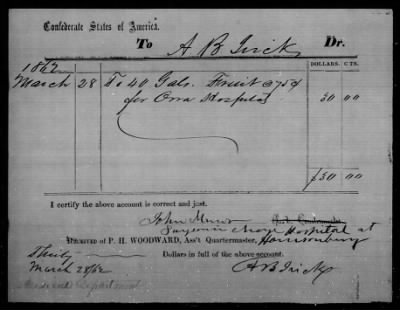 Confederate States of America.
To A B Irick, Dr.
DOLLARS. CTS.
1862
March 28 To 40 Gals. Fruit @75¢ 30 00
for Hospital
$30 00
I certify the above account is correct and just.
John
Surgeon in charge Hospital at
RECEIVED of P. H. WOODWARD, Ass't Quartermaster, Harrisonburg
Thirty Dollars in full of the above account.
March 28/62 A B Irick
Department